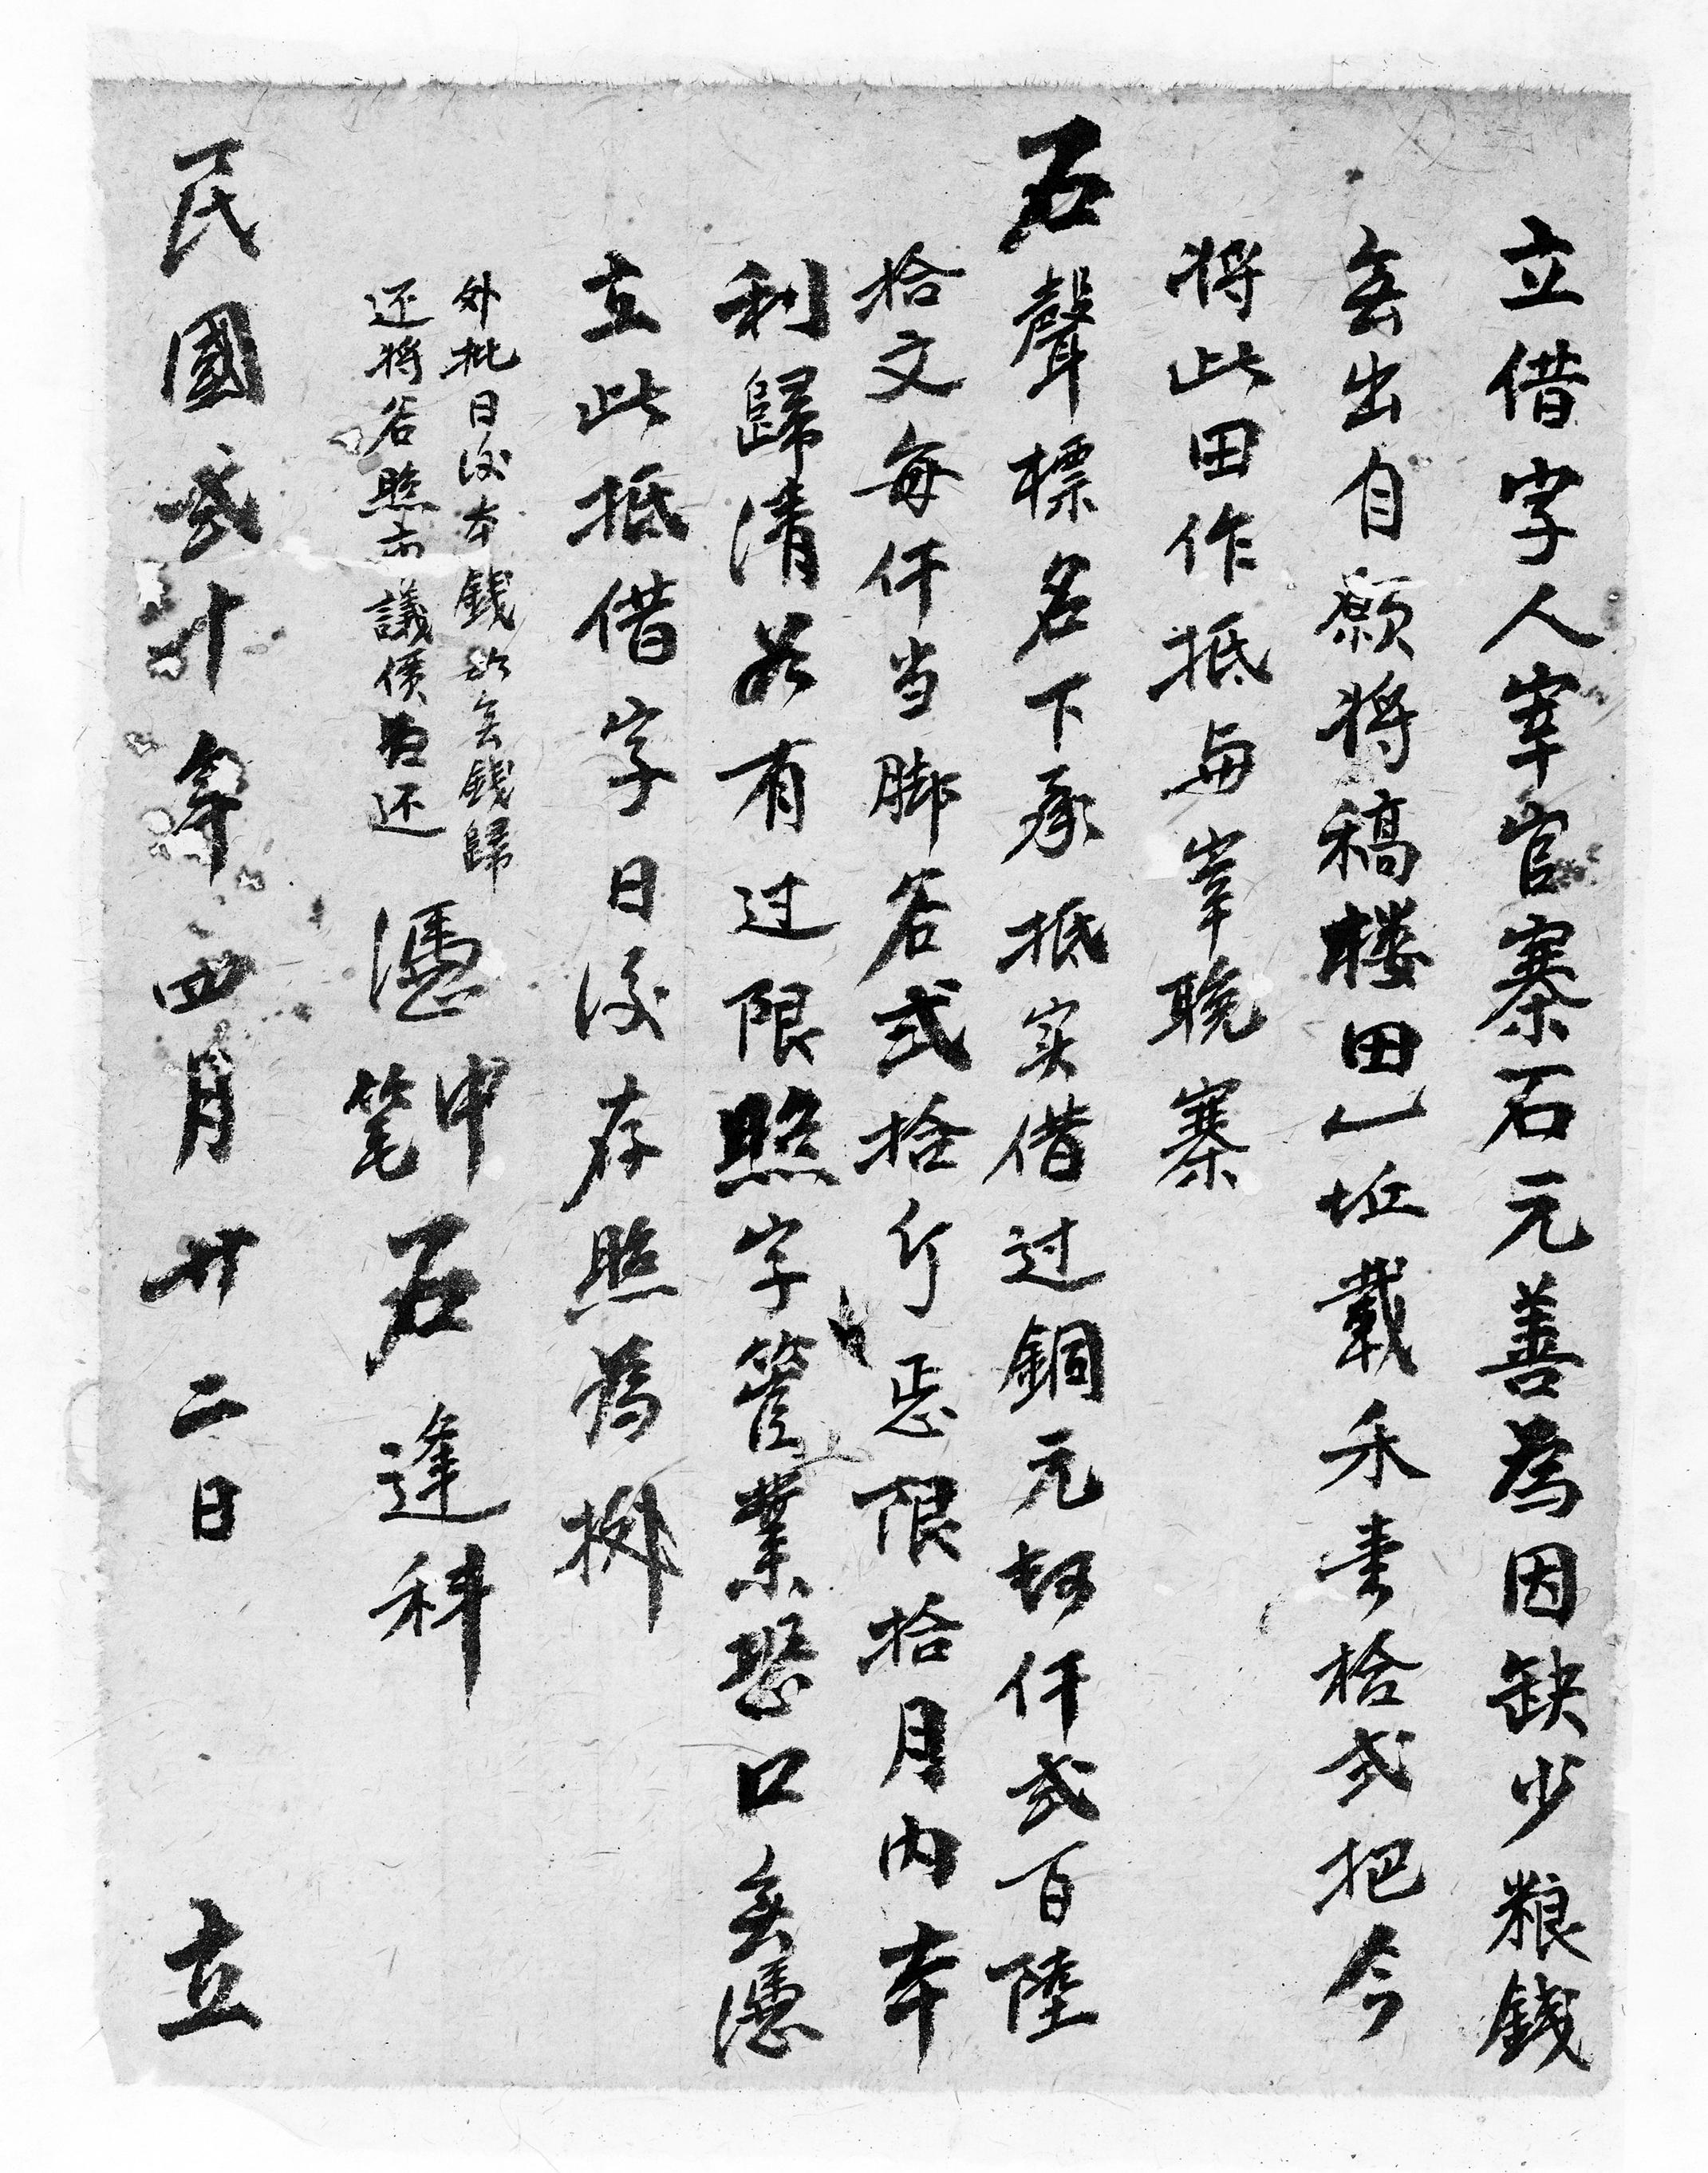 立借字人宰官寨石元善為因缺少粮錢
無出自願将稿楼田一坵載禾壹拾弍把今
将此田作抵与宰晚寨
石聲標名下承抵实借过銅元 仟弍百陸
拾文每仟当脚谷弍拾斤 限拾月内本
利歸清若有过限照字管業恐口無憑
立此抵借字日後存照為拠
外批日後本錢如無錢歸
还将谷照市議價 还
憑中
笔 石逢科
民國弍十年四月廿二日 立